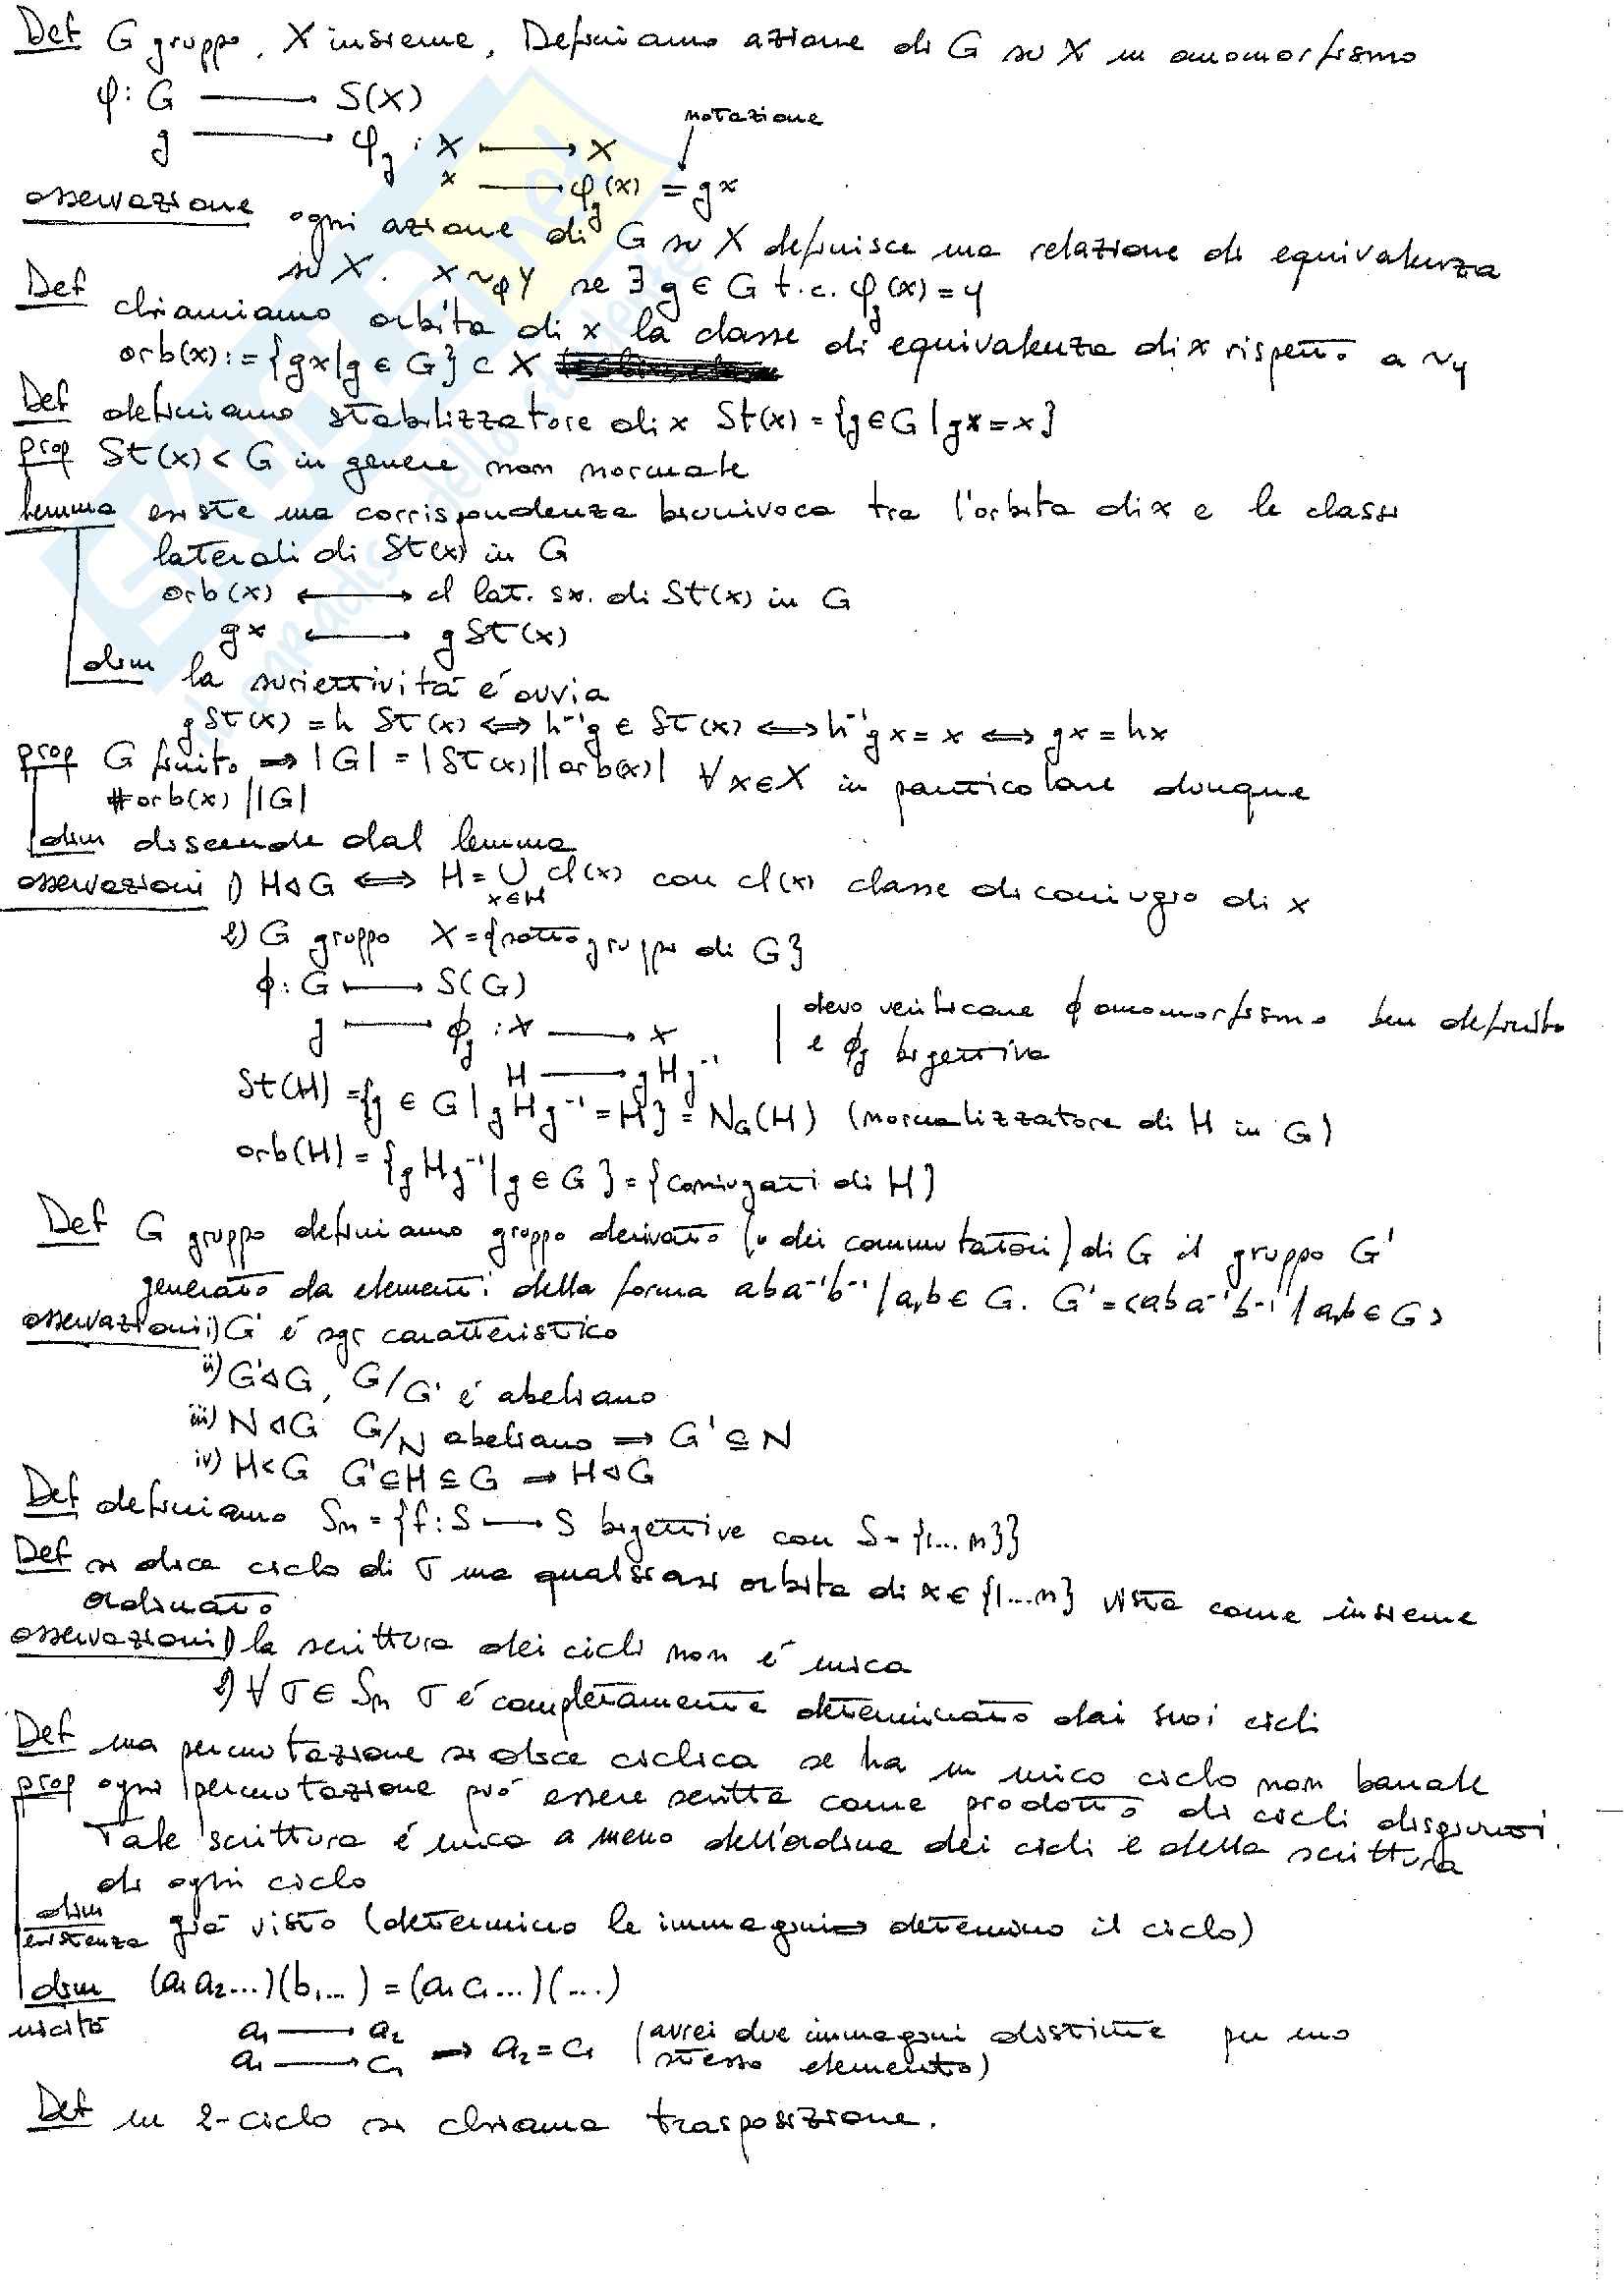 Def G gruppo, X insieme, Definiamo azione di G su X un omomorfismo
φ: G → S(X)
g → φg : X → X
notazione
x → φg(x) = gx
osservazione ogni azione di G su X definisce una relazione di equivalenza
su X. x ~φ y se ∃ g ∈ G t.c. φg(x) = y
Def chiamiamo orbita di x la classe di equivalenza di x rispetto a ~φ
orb(x) := {gx | g ∈ G} ⊂ X
Def definiamo stabilizzatore di x St(x) = {g ∈ G | gx = x}
prop St(x) < G in genere non normale
lemma esiste una corrispondenza biunivoca tra l'orbita di x e le classi
laterali di St(x) in G
orb(x) ⟷ cl lat. sx. di St(x) in G
gx ⟷ g St(x)
dim la suriettività é ovvia
g St(x) = h St(x) ⟺ h⁻¹g ∈ St(x) ⟺ h⁻¹gx = x ⟺ gx = hx
prop G finito ⟹ |G| = |St(x)||orb(x)| ∀ x ∈ X in particolare dunque
#orb(x) | |G|
dim discende dal lemma
osservazioni 1) H ◁ G ⟺ H = ∪ cl(x) con cl(x) classe di coniugio di x
x∈H
2) G gruppo X = {sottogruppi di G}
ϕ: G ⟼ S(G)
g ⟼ ϕg : X → X | devo verificare ϕ omomorfismo ben definito
H → gHg⁻¹ | e ϕg bigettiva
St(H) = {g ∈ G | gHg⁻¹ = H} = N_G(H) (normalizzatore di H in G)
orb(H) = {gHg⁻¹ | g ∈ G} = {coniugati di H}
Def G gruppo definiamo gruppo derivato (o dei commutatori) di G il gruppo G'
generato da elementi della forma aba⁻¹b⁻¹ | a,b ∈ G. G' = <aba⁻¹b⁻¹ | a,b ∈ G>
osservazioni i) G' é sgr caratteristico
ii) G' ◁ G, G/G' é abeliano
iii) N ◁ G G/N abeliano ⟹ G' ⊆ N
iv) H < G G' ⊆ H ⊆ G ⟹ H ◁ G
Def definiamo Sn = {f: S ⟼ S bigettive con S = {1...n}}
Def si dice ciclo di σ una qualsiasi orbita di x ∈ {1...n} vista come insieme
ordinato
osservazioni 1) la scrittura dei cicli non é unica
2) ∀ σ ∈ Sn σ é completamente determinato dai suoi cicli
Def una permutazione si dice ciclica se ha un unico ciclo non banale
prop ogni permutazione puó essere scritta come prodotto di cicli disgiunti.
Tale scrittura é unica a meno dell'ordine dei cicli e della scrittura
di ogni ciclo
dim esistenza giá visto (determino le immagini ⟹ determino il ciclo)
dim (a₁ a₂ ...)(b₁ ...) = (a₁ c₁ ...)(...)
unicitá
a₁ → a₂
a₁ → c₁ ⟹ a₂ = c₁ (avrei due immagini distinte per uno
stesso elemento)
Def un 2-ciclo si chiama trasposizione.